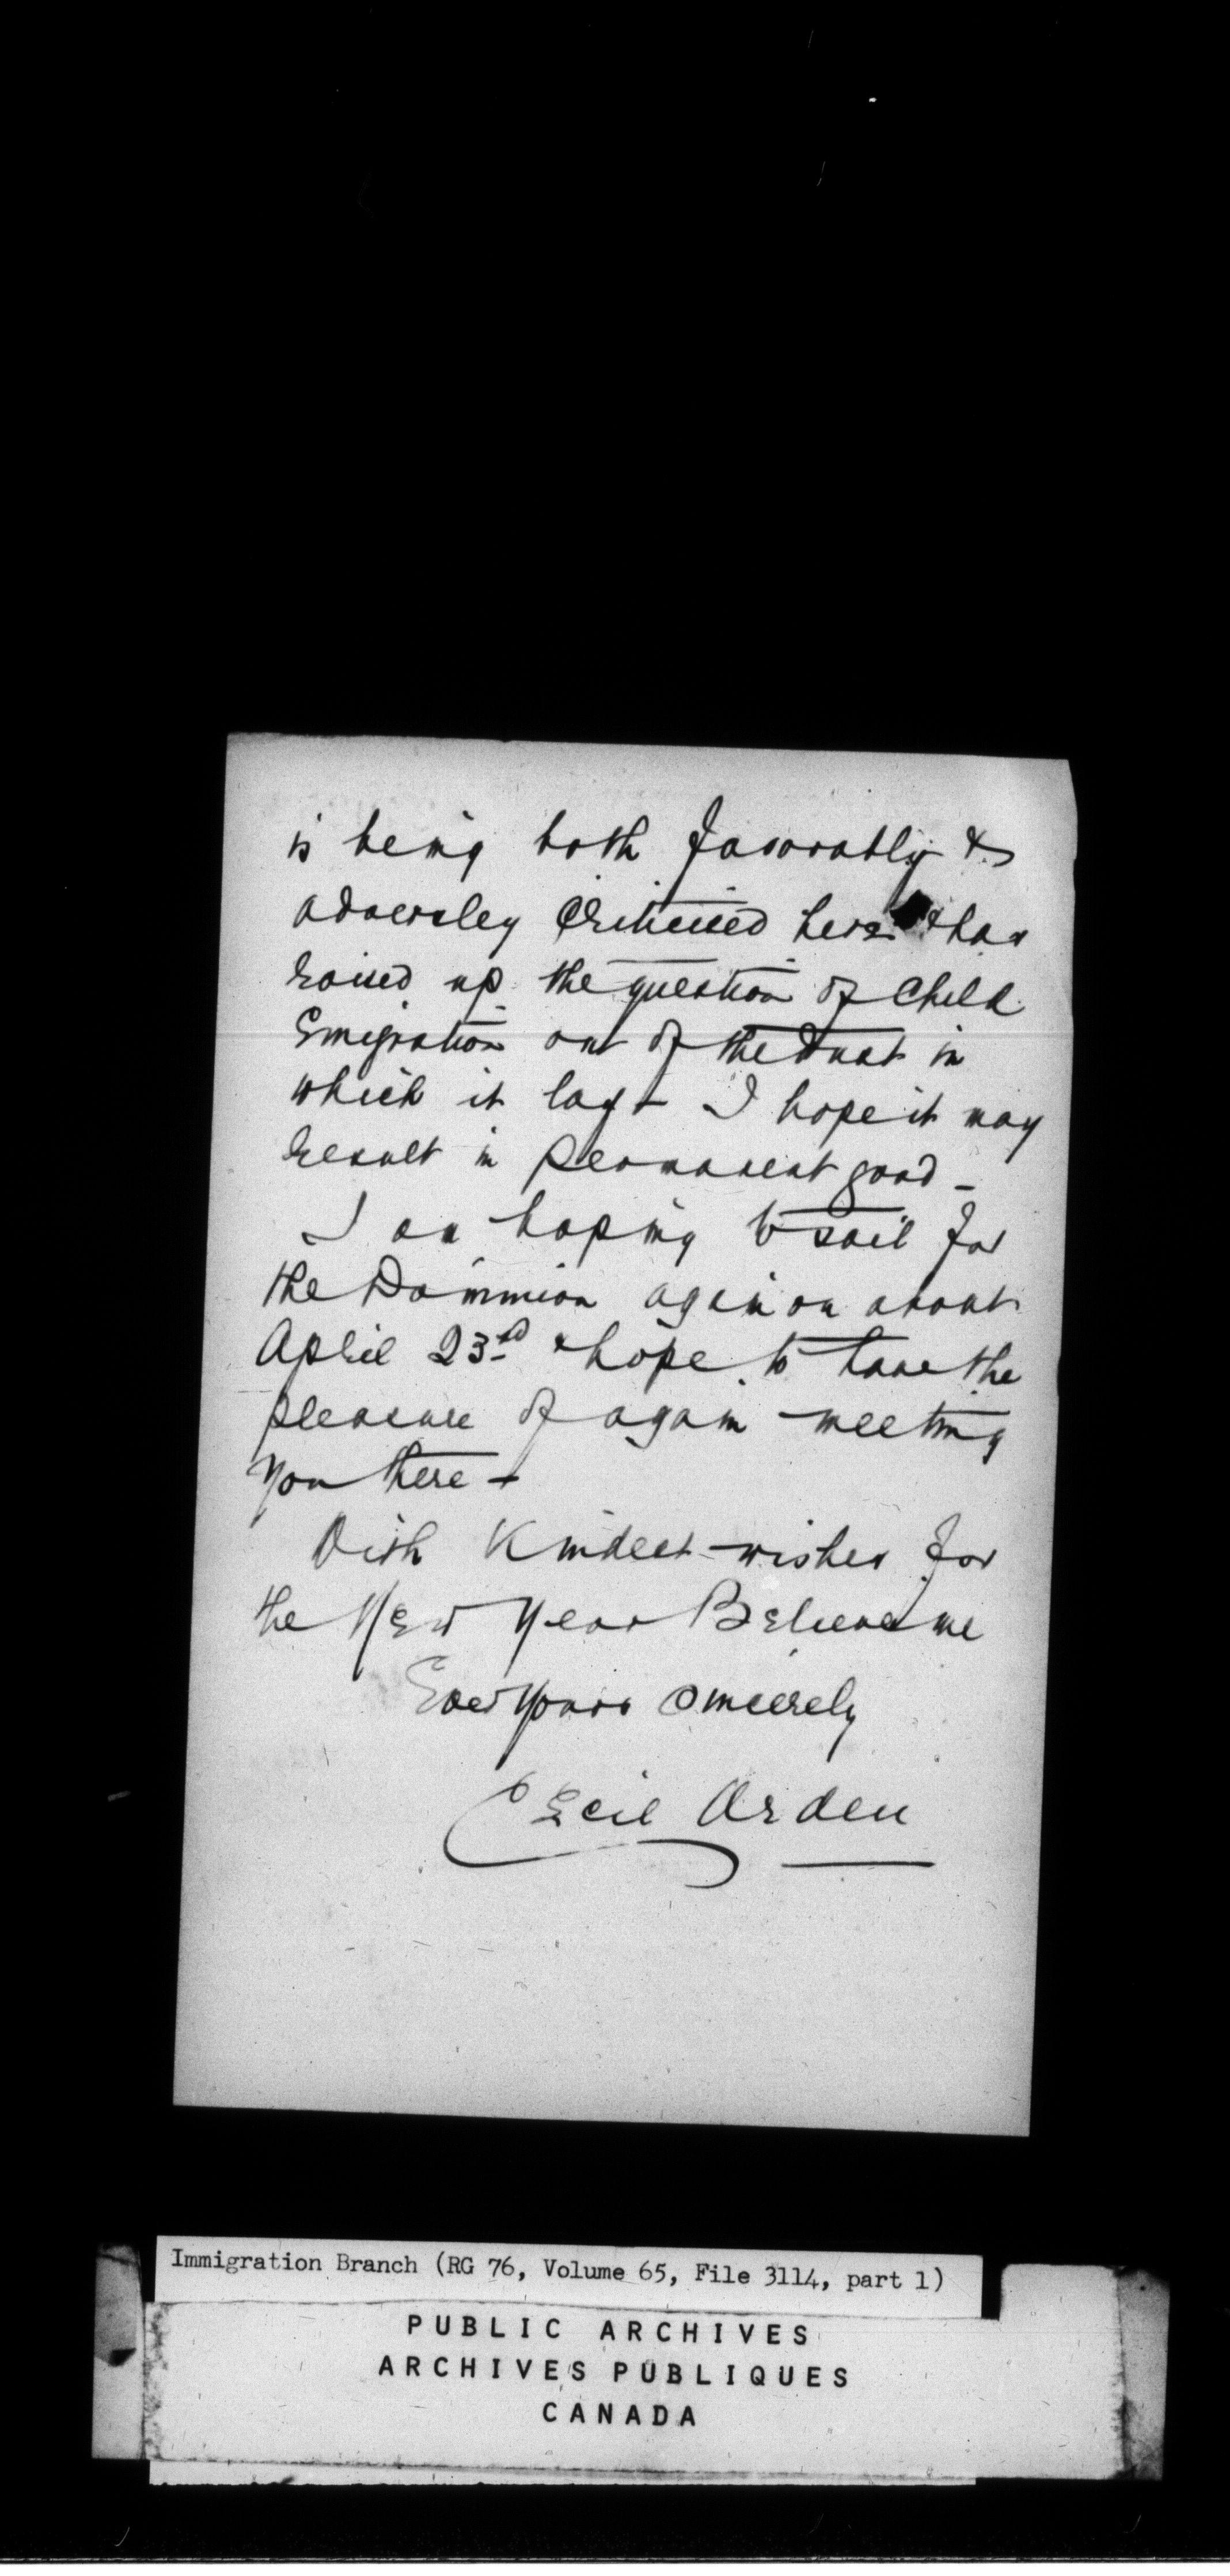 is being both favorably &
adversley Criticised here & has
raised up the question of Child
Emigration out of the dust in
which it lay - I hope it may
result in permanent good -
I am hoping to sail for
the Dominion again on about
April 23rd & hope to have the
pleasure of again meeting
you there -
With Kindest wishes for
the New Year Believe me
Ever yours sincerely
Cecil Arden
Immigration Branch (RG 76, Volume 65, File 3114, part 1)
PUBLIC ARCHIVES
ARCHIVES PUBLIQUES
CANADA